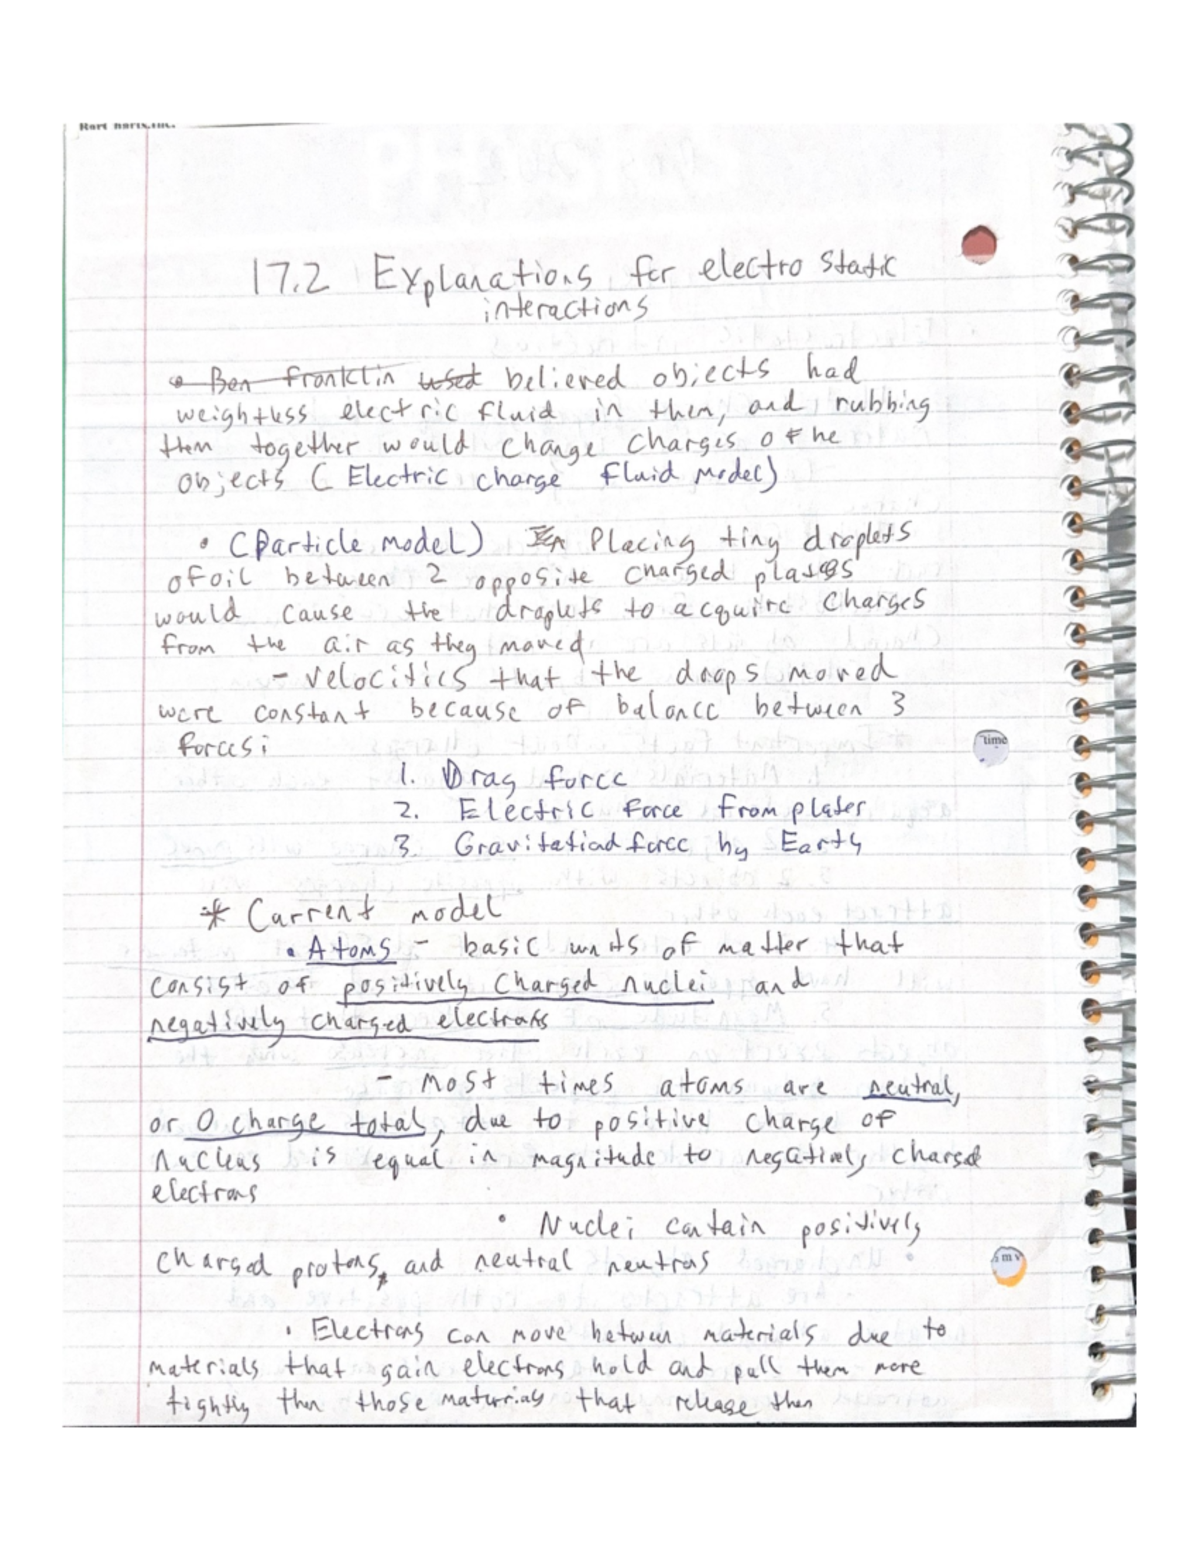 17.2 Explanations for electro static
interactions
• Ben Franklin used believed objects had
weightless electric fluid in them, and rubbing
them together would change charges of he
objects ( Electric charge fluid model)
• (Particle model) Placing tiny droplets
of oil between 2 opposite charged plates
would cause the droplets to acquire charges
from the air as they moved
- velocities that the drops moved
were constant because of balance between 3
forces:
1. Drag force
2. Electric force from plates
3. Gravitational force by Earth
* Current model
• Atoms - basic units of matter that
consist of positively charged nuclei and
negatively charged electrons
- most times atoms are neutral,
or 0 charge total, due to positive charge of
nucleus is equal in magnitude to negatively charged
electrons
• Nuclei contain positively
charged protons, and neutral neutrons
time
m v
• Electrons can move between materials due to
materials that gain electrons hold and pull them more
tightly than those materials that release them